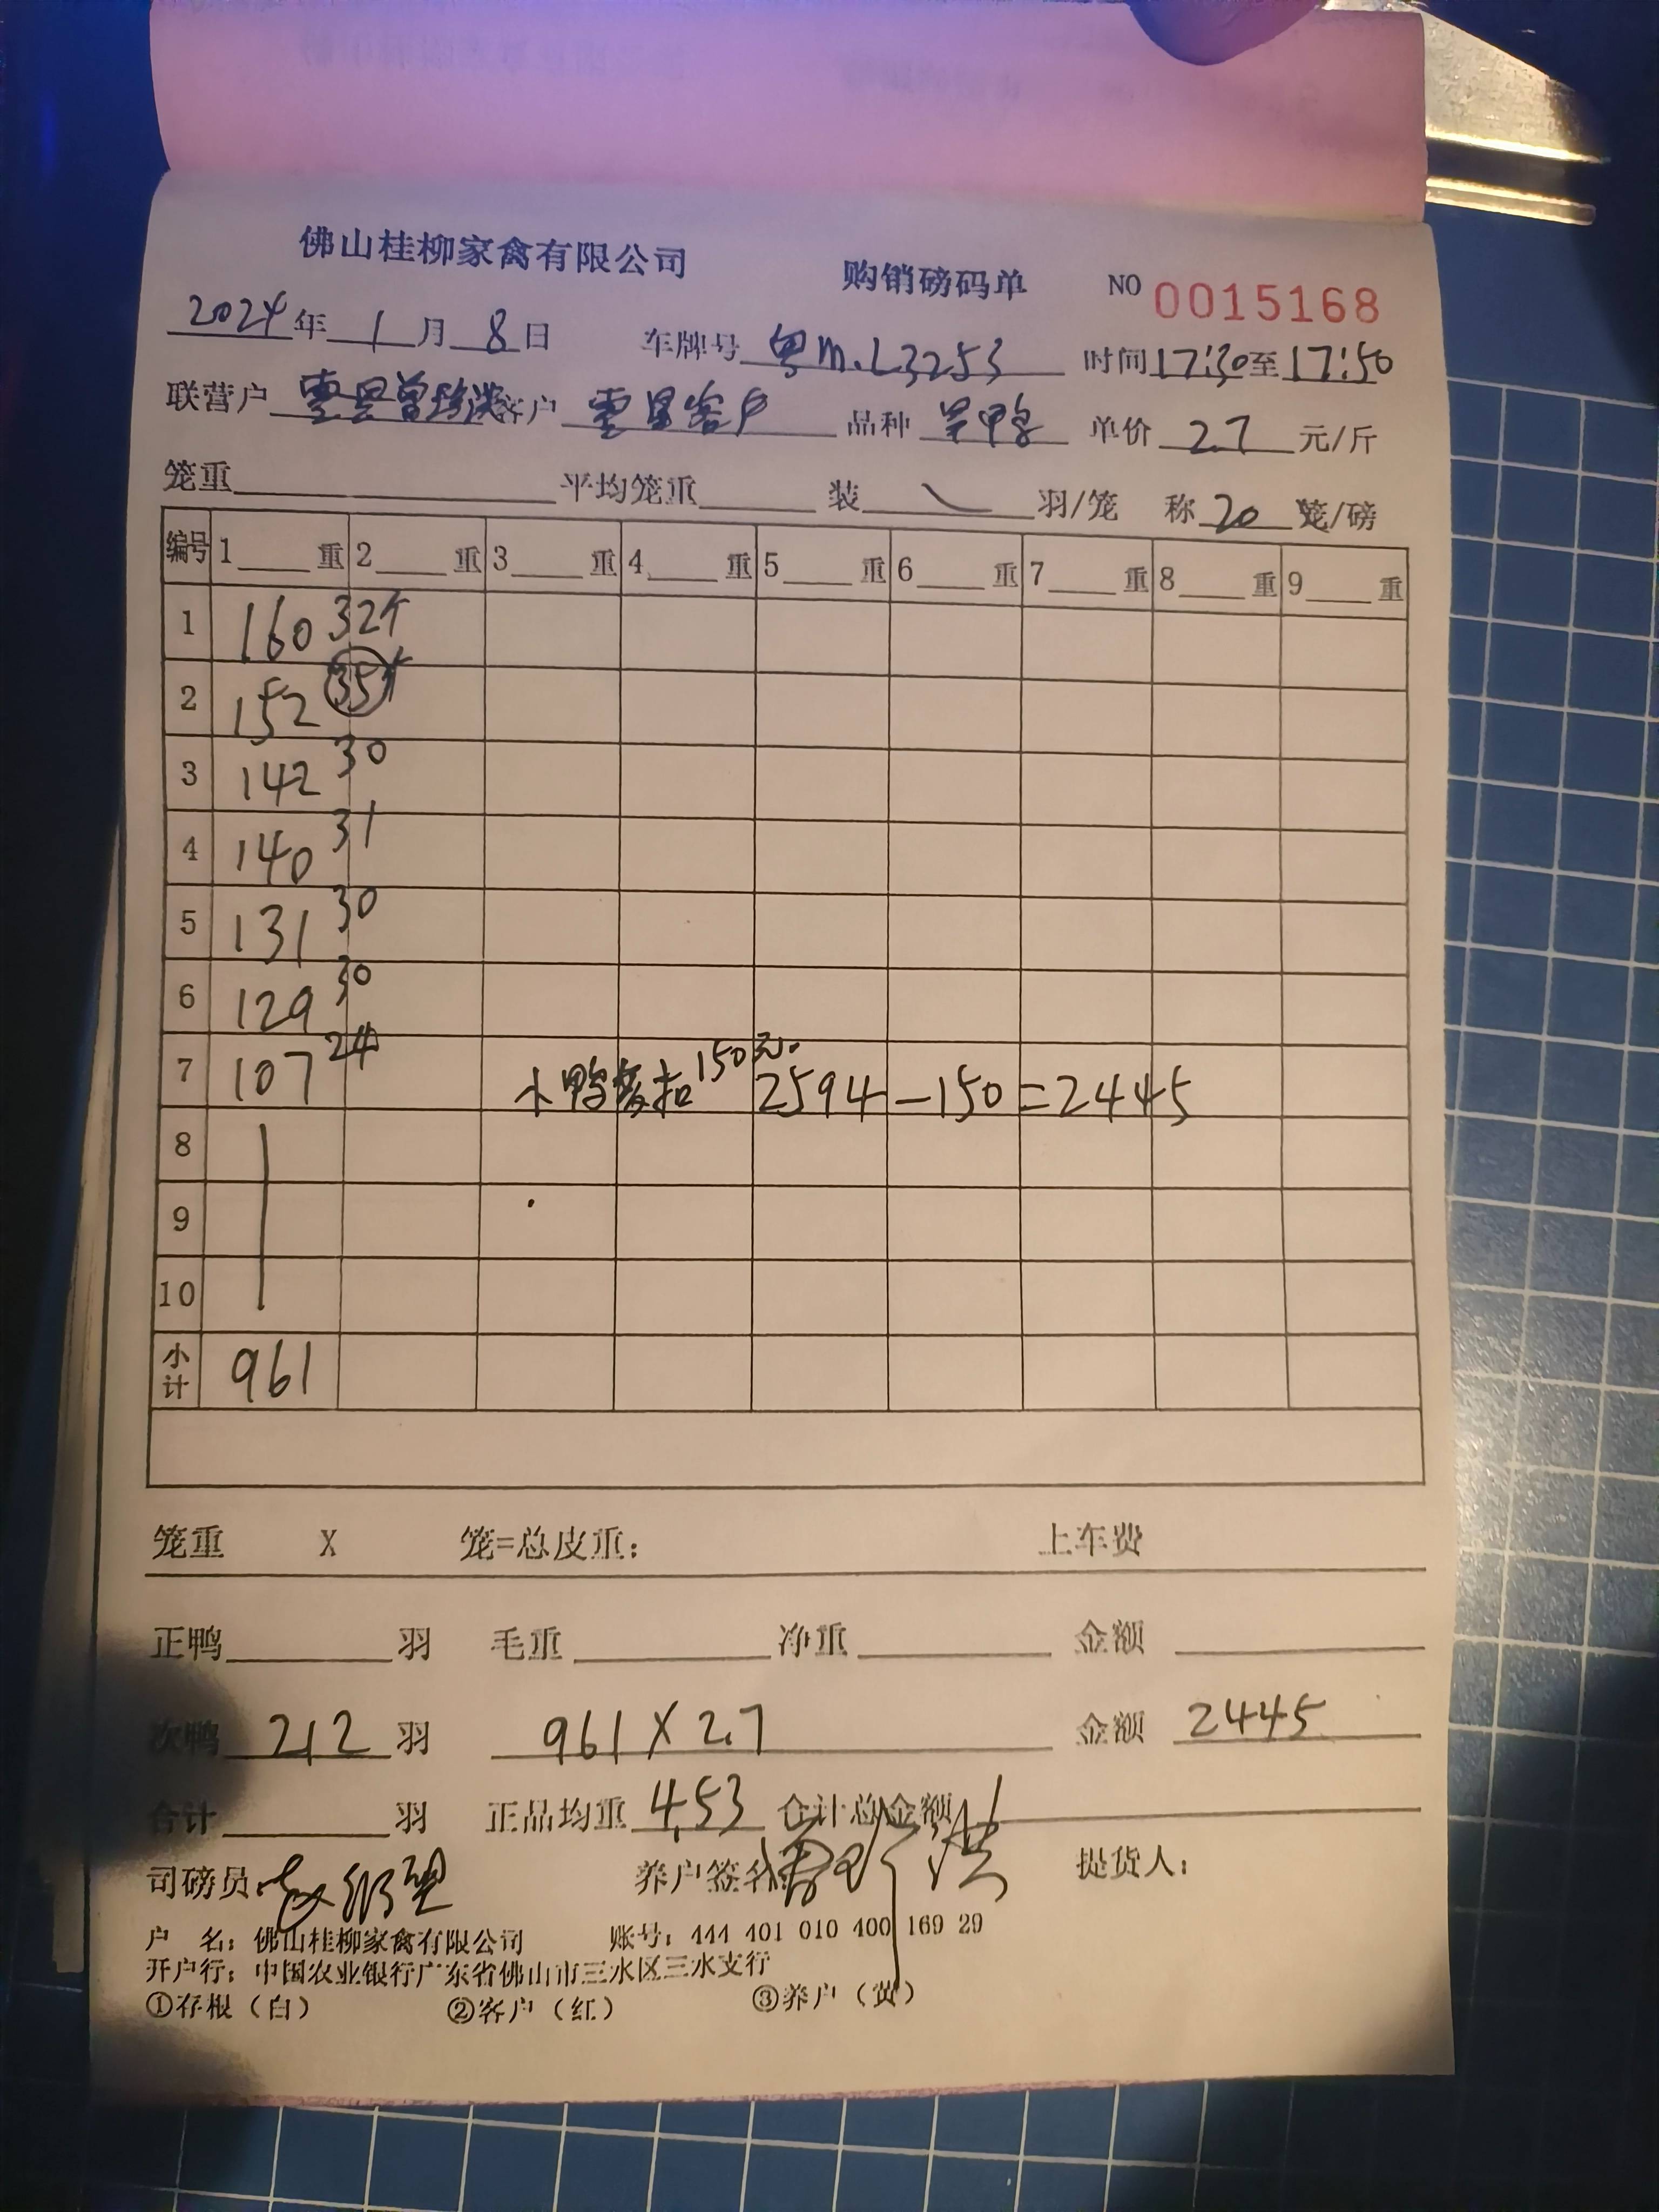 佛山桂柳家禽有限公司 购销磅码单 NO 0015168
2024年1月8日 车牌号 粤m.L3253 时间17:30至17:50
联营户 客户 客户 品种 鸭 单价 2.7 元/斤
笼重 平均笼重 装 羽/笼 称 20 笼/磅
编号 1 重 2 重 3 重 4 重 5 重 6 重 7 重 8 重 9 重
1 160 32个
2 152 35个
3 142 30
4 140 31
5 131 30
6 129 30
7 107 24 小鸭 扣150元. 2594-150=2445
8
9
10
小计 961
笼重 X 笼=总皮重: 上车费
正鸭 羽 毛重 净重 金额
次鸭 212 羽 961×2.7 金额 2445
合计 羽 正品均重 4.53 合计总金额
司磅员: 养户签名: 提货人:
户 名: 佛山桂柳家禽有限公司 账号: 444 401 010 400 169 29
开户行: 中国农业银行广东省佛山市三水区三水支行
①存根(白) ②客户(红) ③养户(黄)